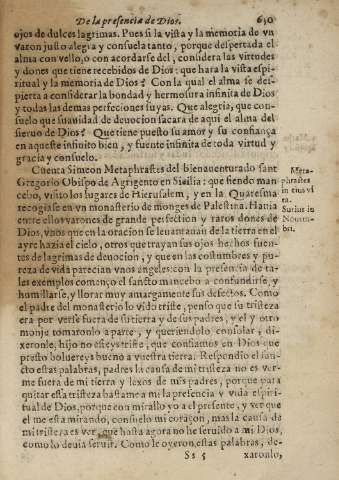 De la presencia de Dios. 650
ojos de dulces lagrimas. Pues si la vista y la memoria de vn
varon justo alegra y consuela tanto, porque despertada el
alma con vello, o con acordarse del, considera las virtudes
y dones que tiene recebidos de Dios: que hara la vista espi-
ritual y la memoria de Dios? Con la qual el alma se des-
pierta a considerar la bondad y hermosura infinita de Dios
y todas las demas perfeciones suyas. Que alegria, que con-
suelo que suauidad de deuocion sacara de aqui el alma del
sieruo de Dios? Que tiene puesto su amor y su confiança
en aqueste infinito bien, y fuente infinita de toda virtud y
gracia y consuelo.
Cuenta Simeon Metaphrastes del bienauenturado sant
Gregorio Obispo de Agrigento en Sicilia: que siendo man-
cebo, visito los lugares de Hierusalem, y en la Quaresma
recogiose en vn monasterio de monges de Palestina. Hauia
entre ellos varones de grande perfection y raros dones de
Dios, vnos que en la oracion se leuantauan de la tierra en el
ayre hazia el cielo, otros que trayan sus ojos hechos fuen-
tes de lagrimas de deuocion, y que en las costumbres y pu-
reza de vida parecian vnos angeles: con la presencia de ta-
les exemplos començo el sancto mancebo a confundirse, y
humillarse, y llorar muy amargamente sus defectos. Como
el padre del monasterio lo vido triste, penso que su tristeza
era por verse fuera de su tierra y de sus padres, y el y otro
monje tomaronlo a parte, y queriendolo consolar, di-
xeronle, hijo no esteys triste, que confiamos en Dios que
presto boluereys bueno a vuestra tierra. Respondio el san-
cto estas palabras, padres la causa de mi tristeza no es ver-
me fuera de mi tierra y lexos de mis padres, porque para
quitar esta tristeza bastame a mi la presencia y vida espiri-
tual de Dios, porque con mirallo yo a el presente, y ver que
el me esta mirando, consuelo mi coraçon, mas la causa de
mi tristeza es ver, que hasta agora no he seruido a mi Dios,
como lo deuia seruir. Como le oyeron estas palabras, de-
Ss 5 xaronlo,
Meta-
phrastes
in eius vi
ta.
Surius in
Nouem-
bri.